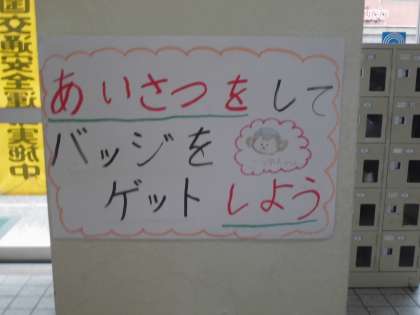 あいさつをして
バッジを
ゲットしよう
実施中